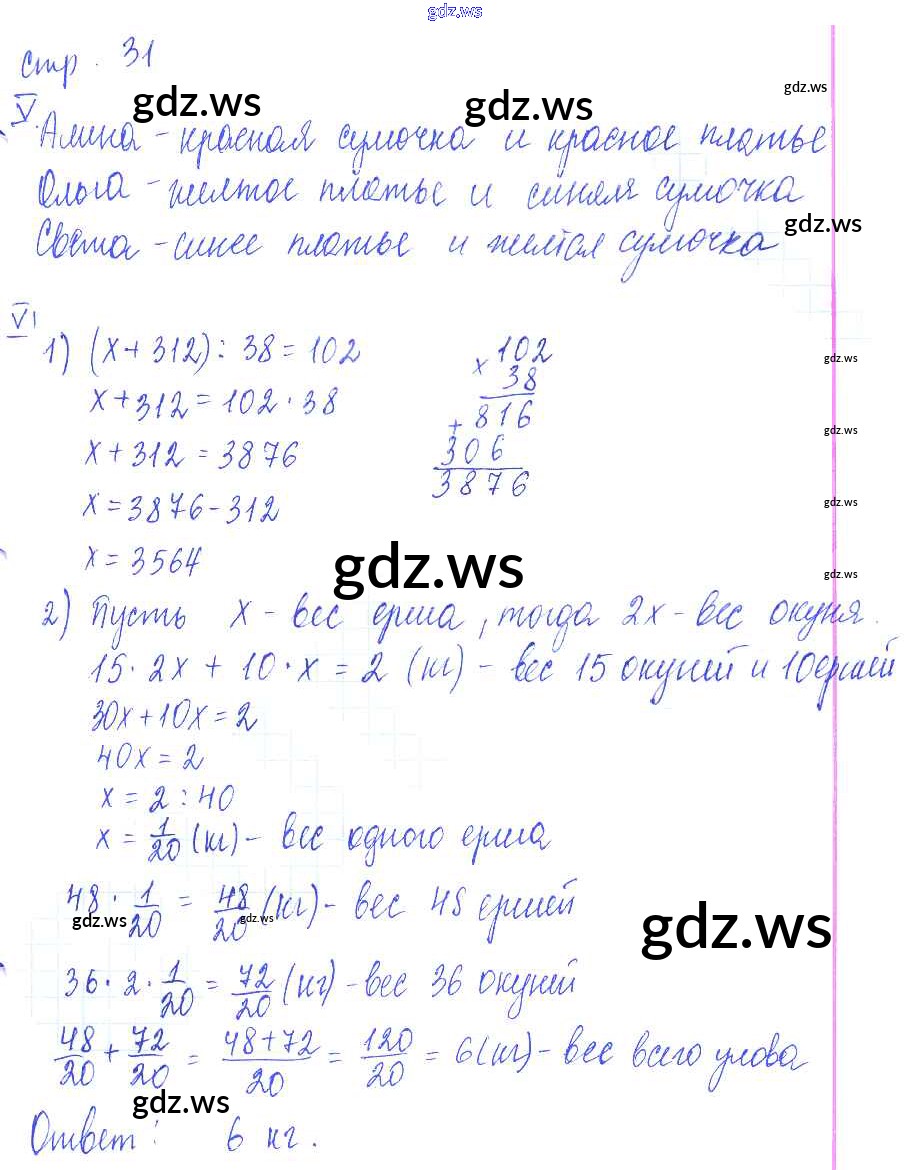 gdz.ws
стр. 31
gdz.ws
gdz.ws
gdz.ws
V.
Алина - красная сумочка и красное платье
Ольга - желтое платье и синяя сумочка
gdz.ws
Света - синее платье и желтая сумочка
VI
1) (x + 312) : 38 = 102
x + 312 = 102 · 38
x + 312 = 3876
x = 3876 - 312
x = 3564
× 102
38
+ 816
306
3876
gdz.ws
gdz.ws
gdz.ws
gdz.ws
gdz.ws
2) Пусть x - вес ерша, тогда 2x - вес окуня.
15 · 2x + 10 · x = 2 (кг) - вес 15 окуней и 10 ершей
30x + 10x = 2
40x = 2
x = 2 : 40
x = 1/20 (кг) - вес одного ерша
48 · 1/20 = 48/20 (кг) - вес 48 ершей
gdz.ws
gdz.ws
gdz.ws
36 · 2 · 1/20 = 72/20 (кг) - вес 36 окуней
48/20 + 72/20 = 48+72/20 = 120/20 = 6 (кг) - вес всего улова
gdz.ws
gdz.ws
Ответ: 6 кг.